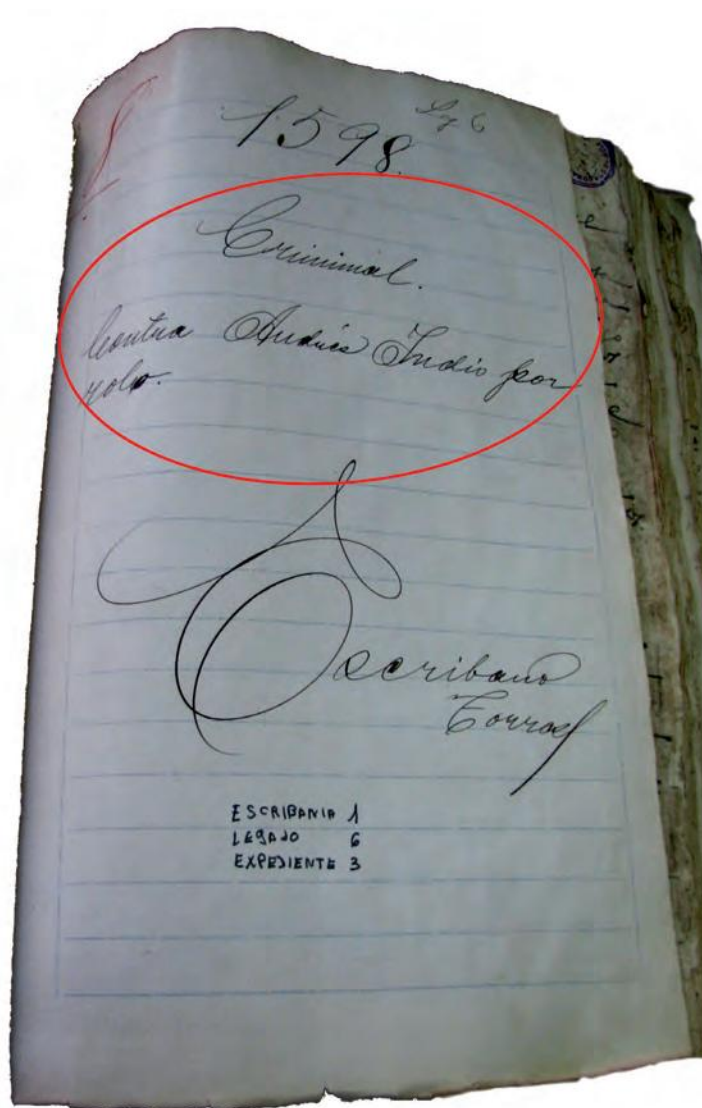 Lg 6
1598.
Criminal.
Contra Andrés Indio por
robo.
Escribano
Torres
ESCRIBANIA 1
LEGAJO 6
EXPEDIENTE 3